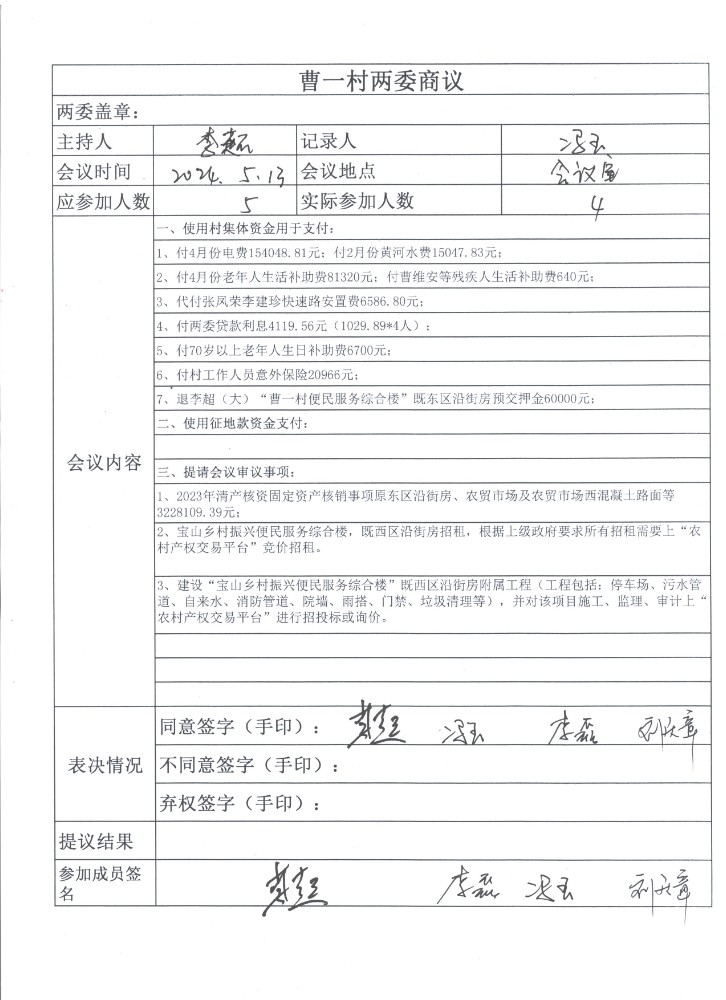 曹一村两委商议
两委盖章：
主持人 记录人 冯玉
会议时间 2024. 5.13 会议地点 会议室
应参加人数 5 实际参加人数 4
一、使用村集体资金用于支付：
1、付4月份电费154048.81元；付2月份黄河水费15047.83元；
2、付4月份老年人生活补助费81320元；付曹维安等残疾人生活补助费640元；
3、代付张凤荣李建珍快速路安置费6586.80元；
4、付两委贷款利息4119.56元（1029.89*4人）；
5、付70岁以上老年人生日补助费6700元；
6、付村工作人员意外保险20966元；
7、退李超（大）“曹一村便民服务综合楼”既东区沿街房预交押金60000元；
二、使用征地款资金支付：
会议内容
三、提请会议审议事项：
1、2023年清产核资固定资产核销事项原东区沿街房、农贸市场及农贸市场西混凝土路面等
3228109.39元；
2、宝山乡村振兴便民服务综合楼，既西区沿街房招租，根据上级政府要求所有招租需要上“农
村产权交易平台”竞价招租。
3、建设“宝山乡村振兴便民服务综合楼”既西区沿街房附属工程（工程包括：停车场、污水管
道、自来水、消防管道、院墙、雨搭、门禁、垃圾清理等），并对该项目施工、监理、审计上“
农村产权交易平台”进行招投标或询价。
同意签字（手印）： 冯玉 李磊
表决情况 不同意签字（手印）：
弃权签字（手印）：
提议结果
参加成员签
名 李磊 冯玉